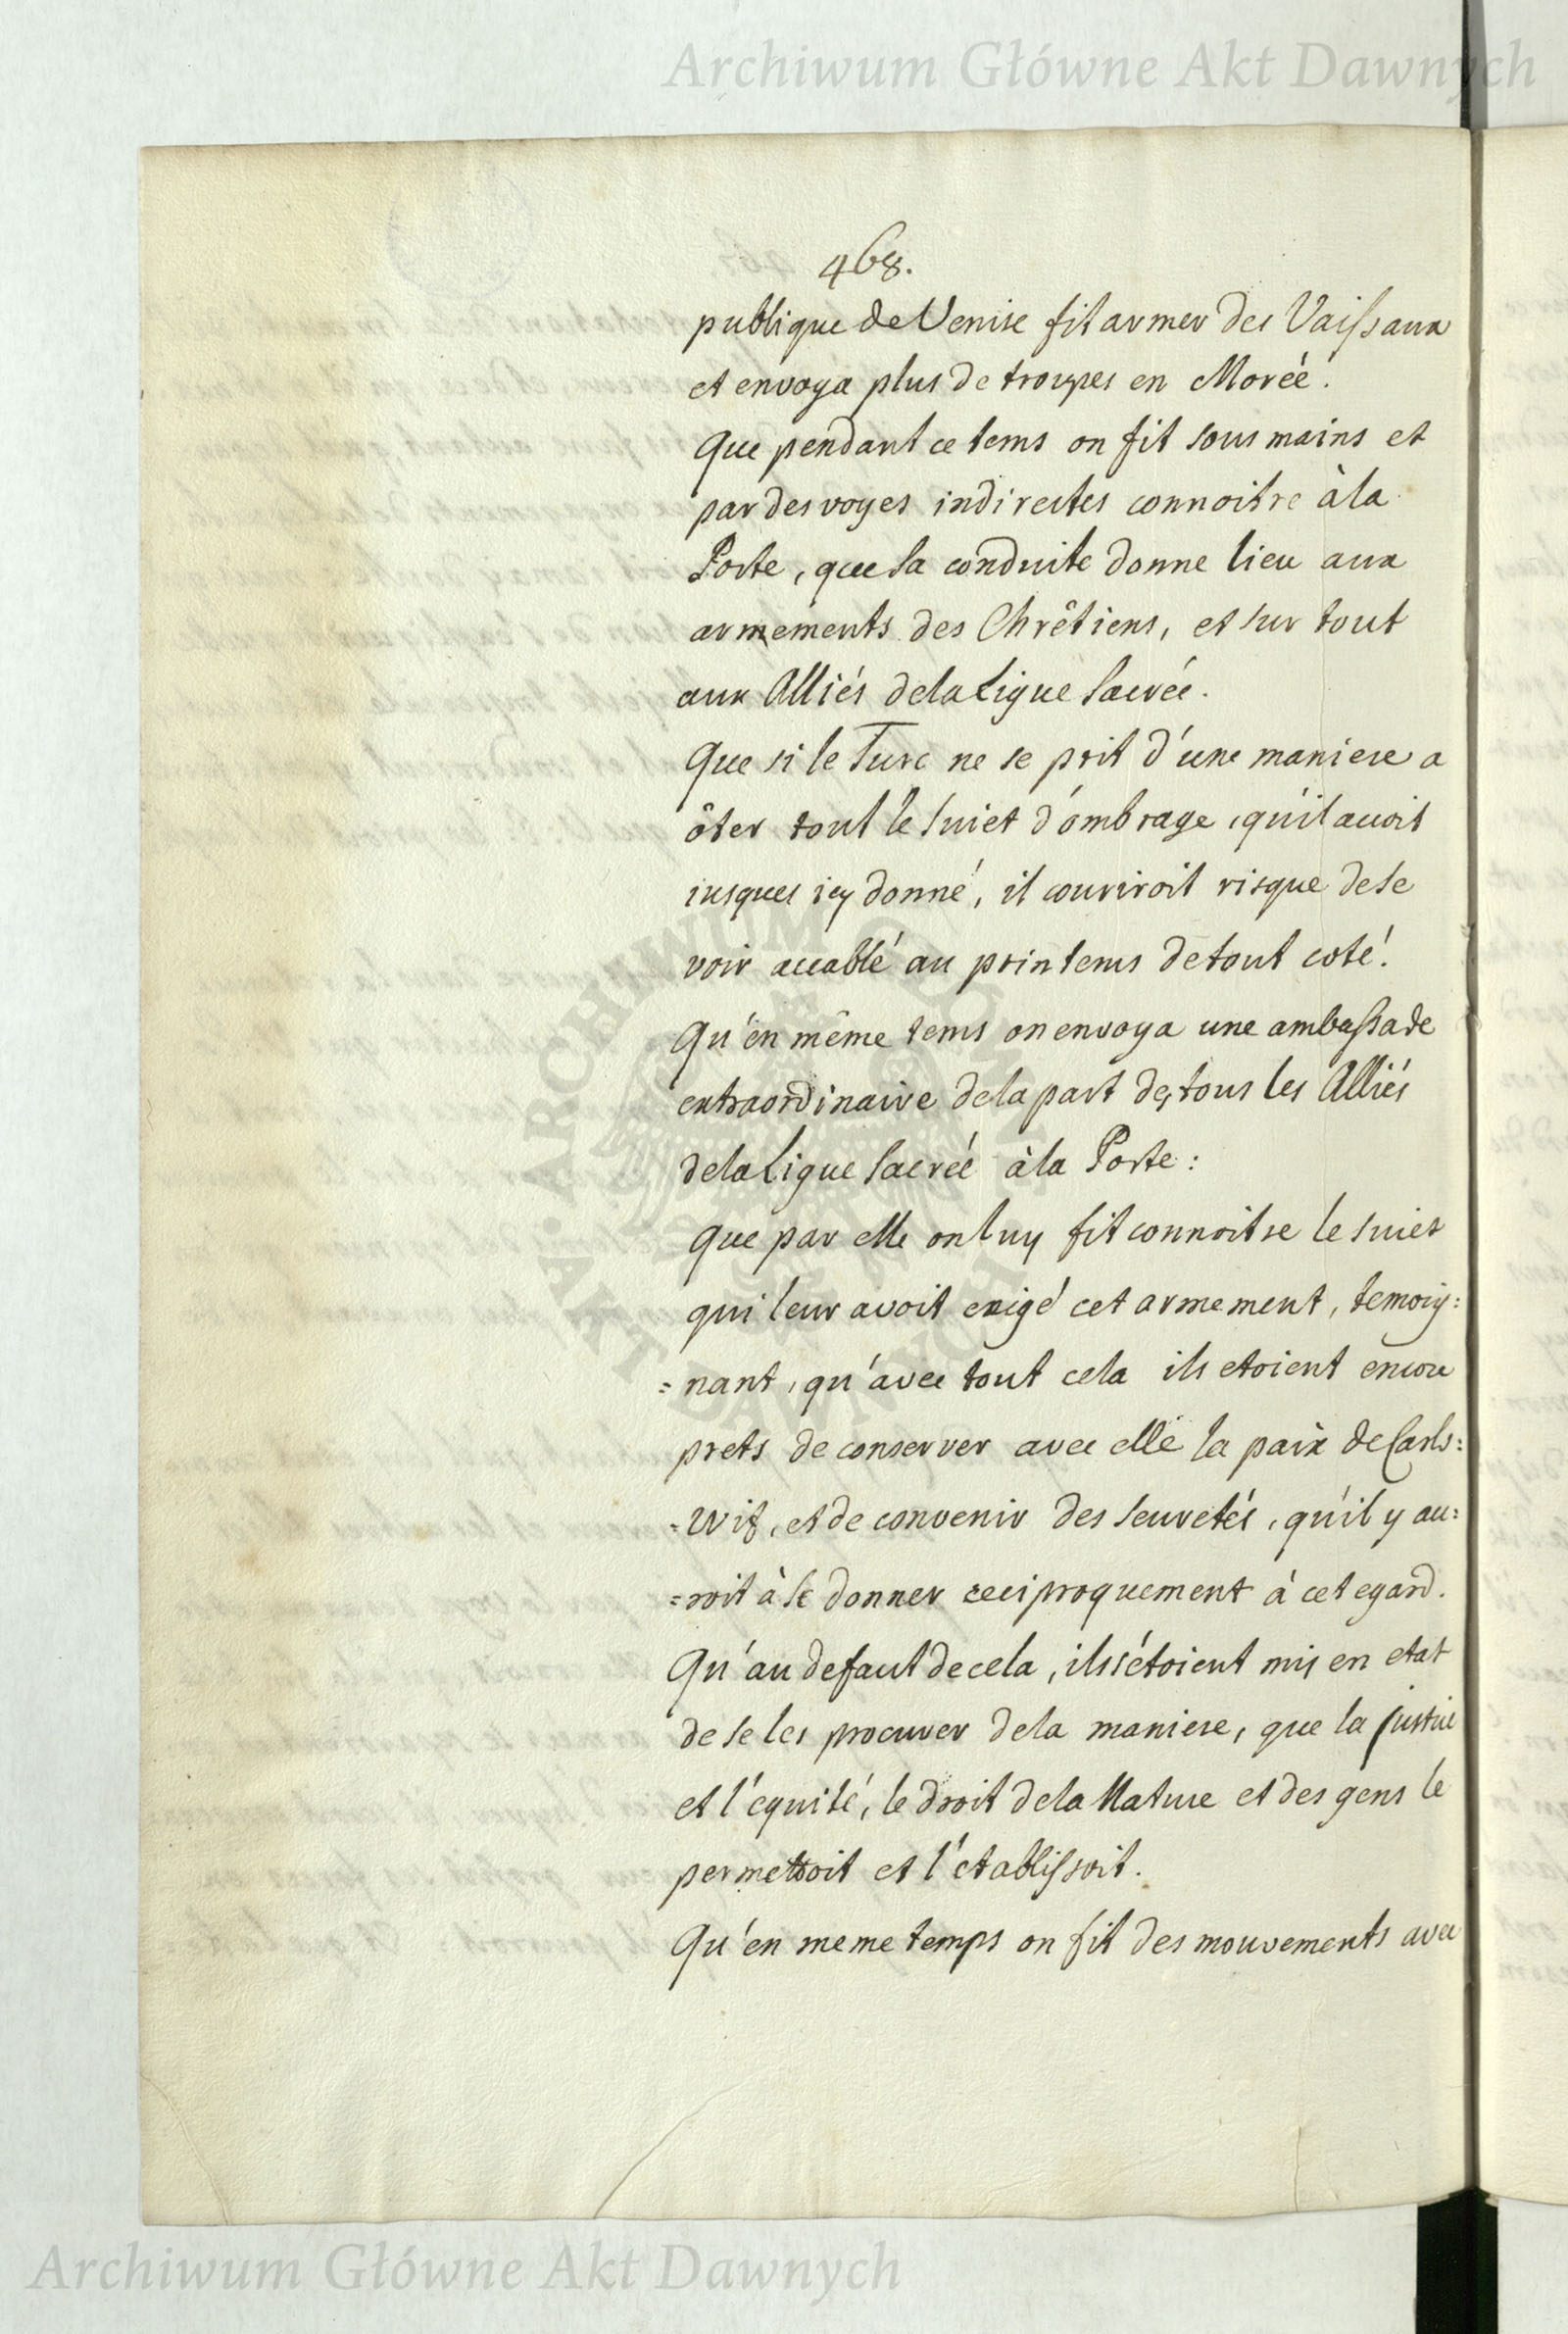 Archiwum Główne Akt Dawnych
468.
publique de Venise fit armer des Vaissaux
et envoya plus de troupes en Morée.
Que pendant ce tems on fit sous mains et
par des voyes indirectes connoitre à la
Porte, que sa conduite donne lieu aux
armements des Chrêtiens, et sur tout
aux Alliés de la Ligue Sacrée.
Que si le Turc ne se prit d'une maniere a
ôter tout le suiet d'ombrage, qu'il avoit
iusques icy donné, il couriroit risque de se
voir accablé au printems de tout coté.
Qu'en même tems on envoya une ambassade
extraordinaire de la part de tous les Alliés
de la Ligue Sacrée à la Porte:
Que par elle on luy fit connoitre le suiet
qui leur avoit exigé cet armement, temoig=
=nant, qu'avec tout cela ils etoient encore
prets de conserver avec elle la paix de Carls=
=wiz, et de convenir des seuretés, qu'il y au=
=roit à se donner reciproquement à cet egard.
Qu'au defaut de cela, ils s'étoient mis en etat
de se les procurer de la maniere, que la justice
et l'equité, le droit de la Nature et des gens le
permettoit et l'etablissoit.
Qu'en meme temps on fit des mouvements avec
ARCHIWUM GŁÓWNE
AKT DAWNYCH
Archiwum Główne Akt Dawnych